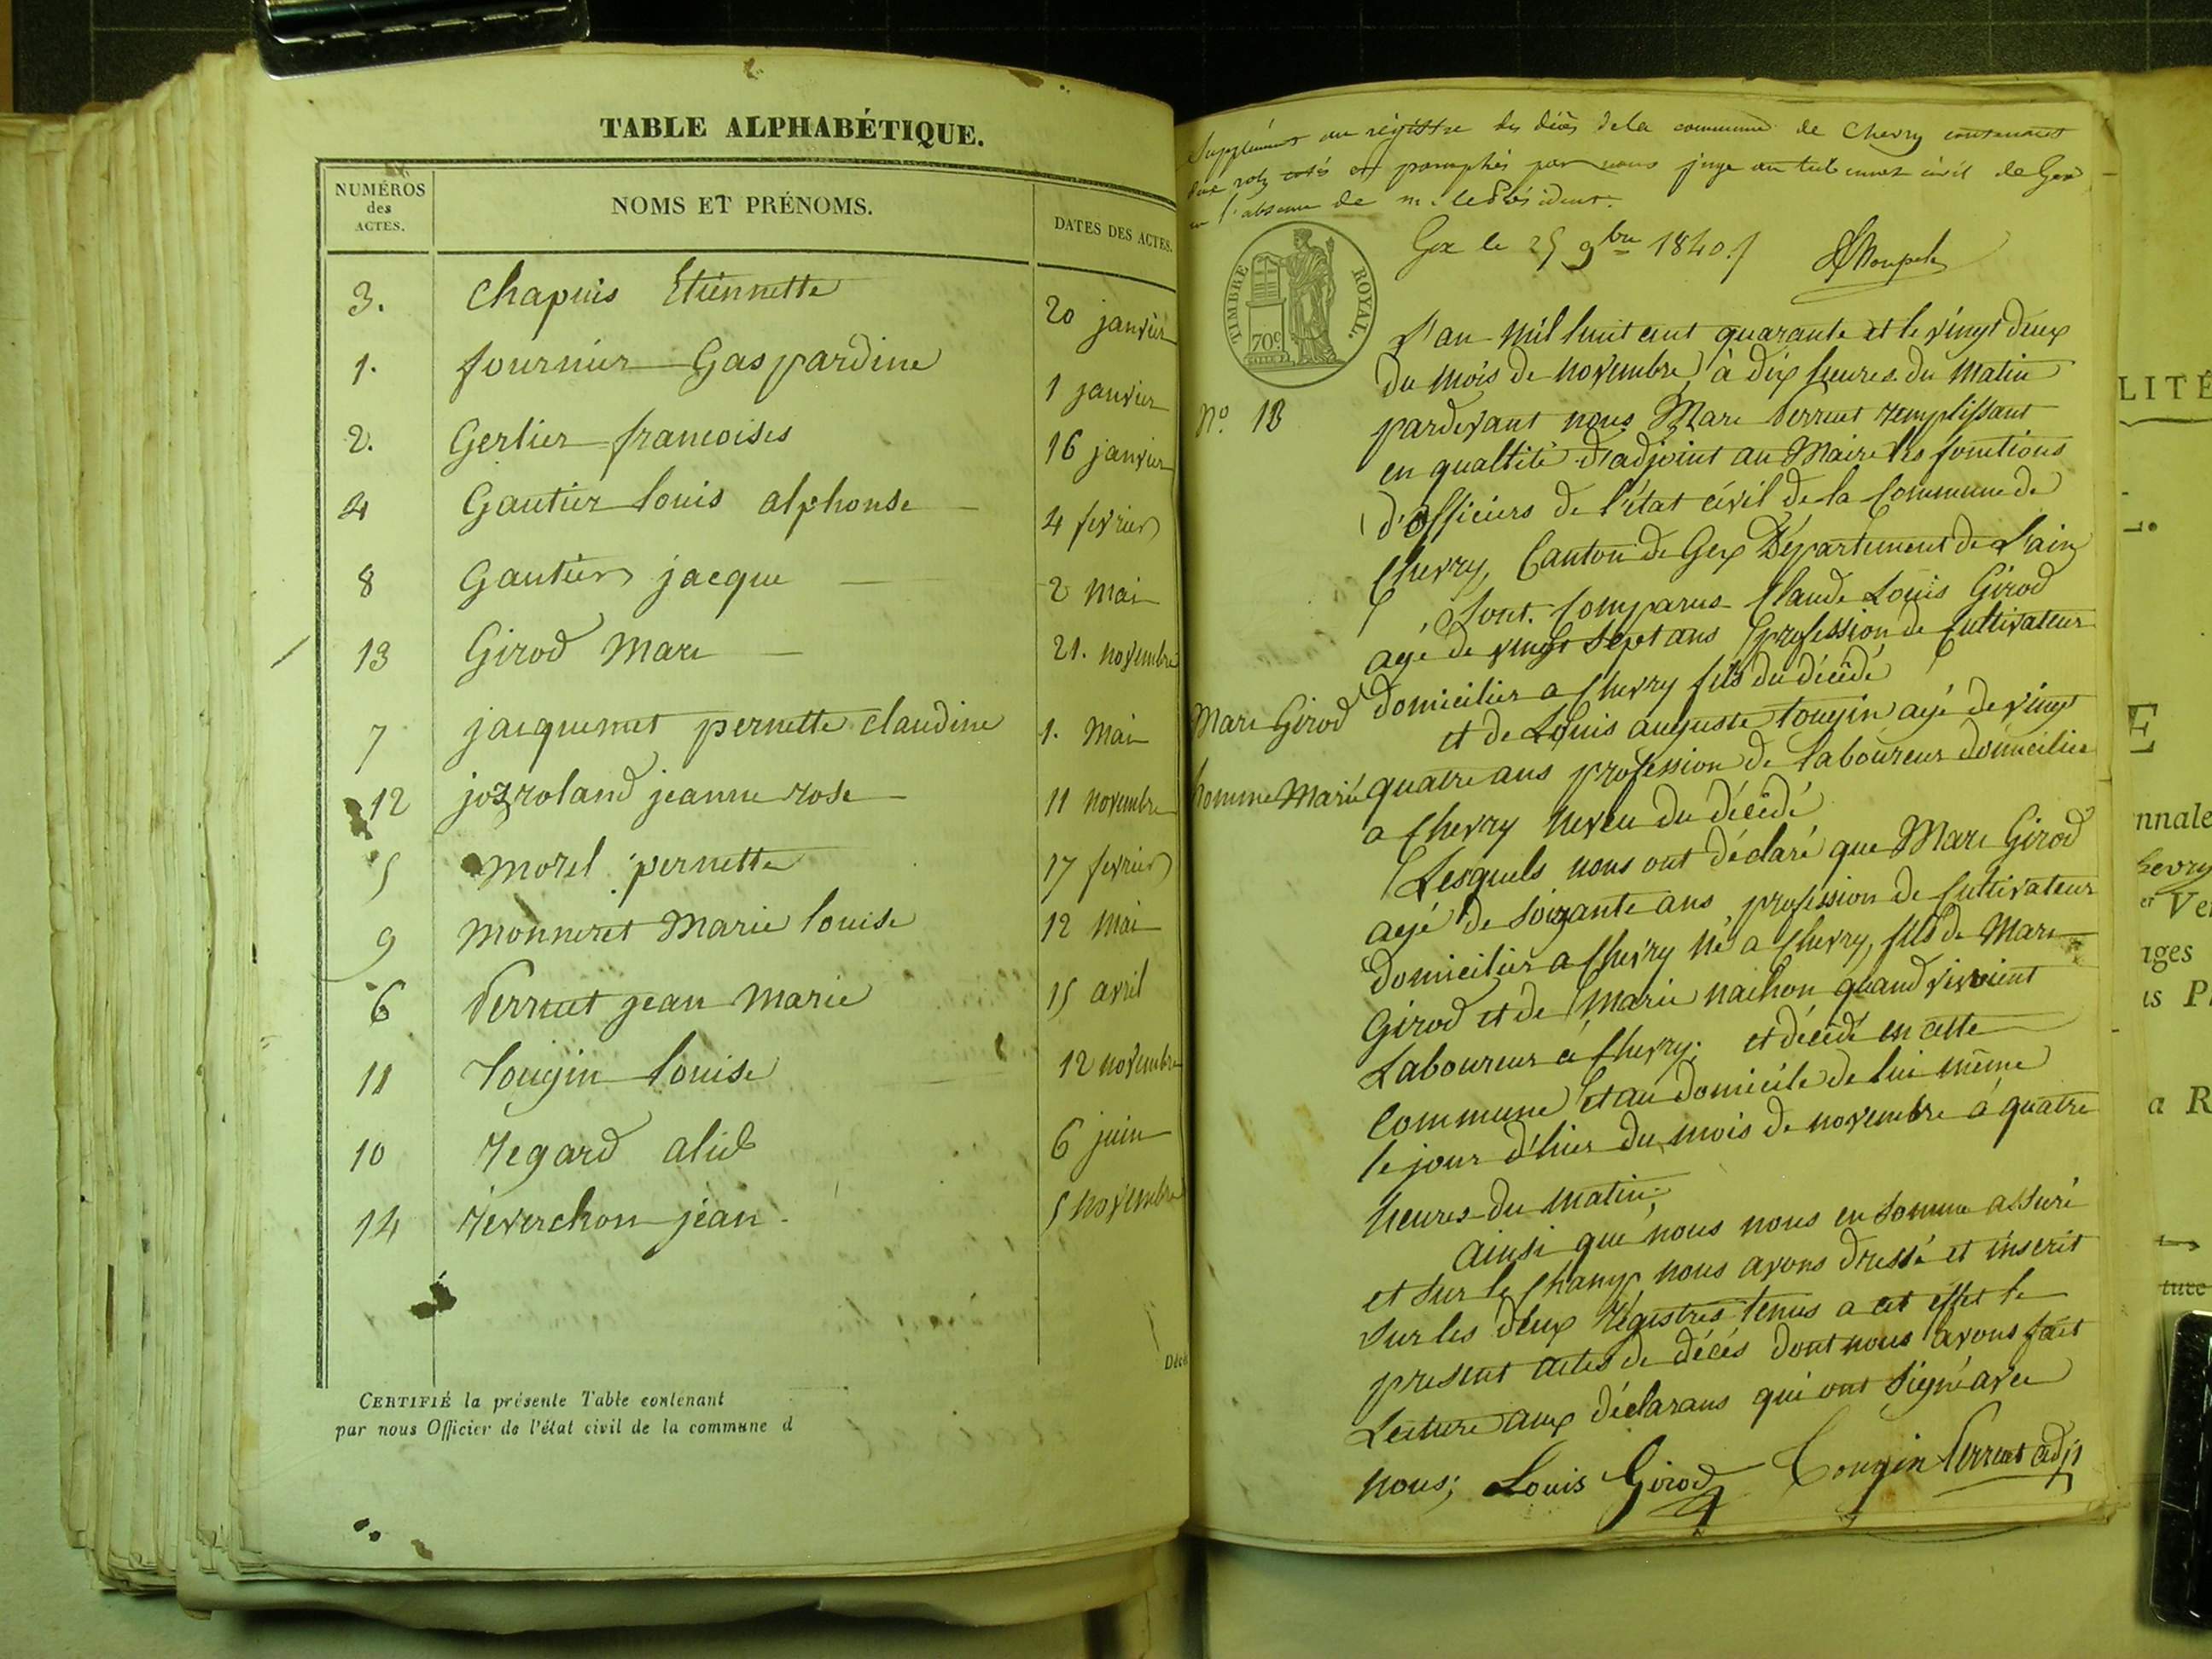 TABLE ALPHABÉTIQUE.
NUMÉROS des ACTES.
NOMS ET PRÉNOMS.
DATES DES ACTES.
3. Chapuis Etiennette 20 janvier
1. fournier Gaspardine 1 janvier
2. Gerlier francoises 16 janvier
4 Gautier Louis alphonse 4 fevrier
8 Gautier jacque 2 Mai
13 Girod Marc 21. novembre
7 jacquemet pernette claudine 1. Mai
12 jozroland jeanne rose 11 novembre
5 Morel pernette 17 fevrier
9 Monneret Marie louise 12 Mai
6 Perruet jean Marie 15 avril
11 Tougin Louise 12 novembre
10 Regard 6 juin
14 réverchon jean 5 novembre
CERTIFIÉ la présente Table contenant
par nous Officier de l'état civil de la commune d
Supplément au régistre des décès de la commune de Chevry contenant
deux rôles cotés et paraphés par nous juge au tribunal civil de Gex
en l'absence de m. le Président.
Gex le 25 9bre 1840
TIMBRE ROYAL.
70c
L'an Mil huit cent quarante et le vingt deux
du Mois de novembre à dix heures du Matin
No. 13
pardevant nous Marc Perruet remplissant
en qualtité d'adjoint au Maire les fonctions
d'officiers de l'état civil de la Commune de
Chevry, Canton de Gex Département de L'ain
Sont Comparus Claude Louis Girod
agé de vingt Sept ans profession de Cultivateur
Marc Girod
domicilier a Chevry fils du décédé
et de Louis auguste tougin agé de vingt
homme Marié
quatre ans profession de Laboureur domicilier
a Chevry neveu du décédé
Lesquels nous ont déclaré que Marc Girod
agé de Soixante ans profession de Cultivateur
domicilier a Chevry né a Chevry, fils de Marc
Girod et de Marie nachon quand vivoient
Laboureur à Chevry; et décédé en cette
Commune et au domicile de lui même
le jour d'hier du mois de novembre à quatre
heures du matin;
ainsi que nous nous en somme assuré
et sur le Champ nous avons dressé et inscrit
sur les deux régistres tenus a cet effet le
present actes de décés dont nous avons fait
Lecture aux déclarans qui ont Signé avec
nous; Louis Girod Tougin Perruet adjt
LITÉ
nnale
evry
ages
a R